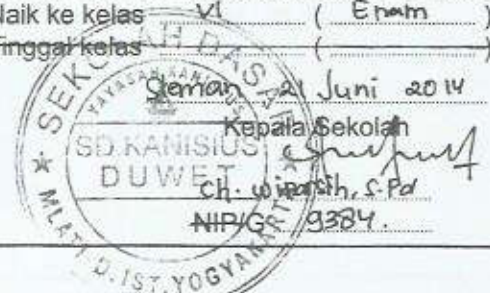 Naik ke kelas VI ( Enam )
Tinggal kelas ( )
Sleman 21 Juni 2014
Kepala Sekolah
Ch. Winarsih, S.Pd
NIP/G 9384.
SEKOLAH DASAR
YAYASAN KANISIUS
SD KANISIUS
DUWET
MLATI D.IST. YOGYAKARTA